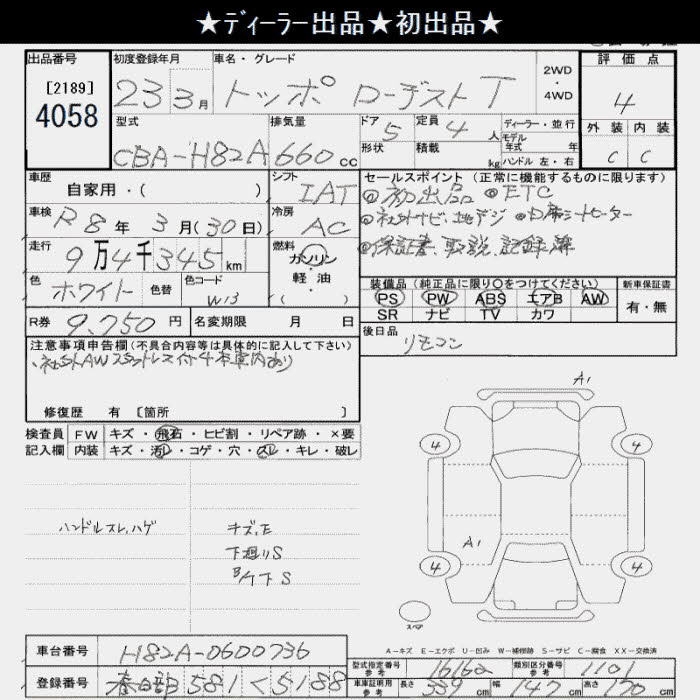 ★ディーラー出品★初出品★
出品番号 初度登録年月 車名・グレード 2WD・4WD 評価点
[2189] 4058 23 3月 トッポ ローデスト T 4
型式 排気量 ドア 定員 ディーラー・並行 外装 内装
CBA-H82A 660cc 5 4人 モデル年式 年 C C
形状 積載 kg ハンドル 左・右
車歴 シフト セールスポイント(正常に機能するものに限ります)
自家用・( ) IAT ◎初出品 ◎ETC
車検 R8年3月(30日) 冷房 AC ◎社外ナビ、地デジ ◎D席シートヒーター
走行 9万4千345km 燃料 ガソリン 軽油 ( ) ◎保証書、取説、記録簿
色 ホワイト 色替 色コード W13
装備品(純正品に限り○をつけてください) 新車保証書
PS PW ABS エアB AW 有・無
SR ナビ TV カワ
R券 9,750円 名変期限 月 日 後日品 リモコン
注意事項申告欄(不具合内容等は具体的に記入して下さい)
、社外AWスタットレス付4本車内あり
修復歴 有 [箇所 ]
検査員 FW キズ・飛石・ヒビ割・リペア跡・×要
記入欄 内装 キズ・汚レ・コゲ・穴・スレ・キレ・破レ
A1
4 4
ハンドルスレ,ハゲ キズ,E
下廻りS A1
下S
4 4
スペア
A-キズ E-エクボ U-凹み W-補修跡 S-サビ C-腐食 XX-交換済
車台番号 H82A-0600736
型式指定番号 参考 16162 類別区分番号 参考 1101
登録番号 春日部 581 く 5188
車車証明用 参考 長さ 339cm 幅 147cm 高さ 170cm